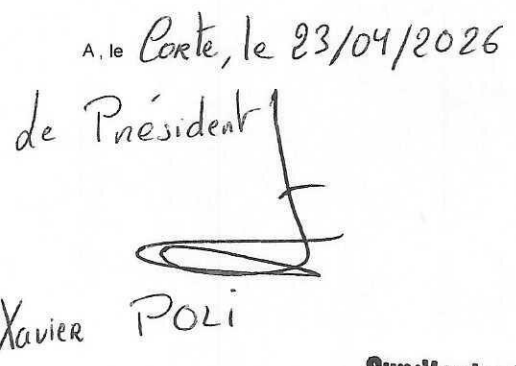 A, le Corte, le 23/04/2026
de Président
Xavier POLI